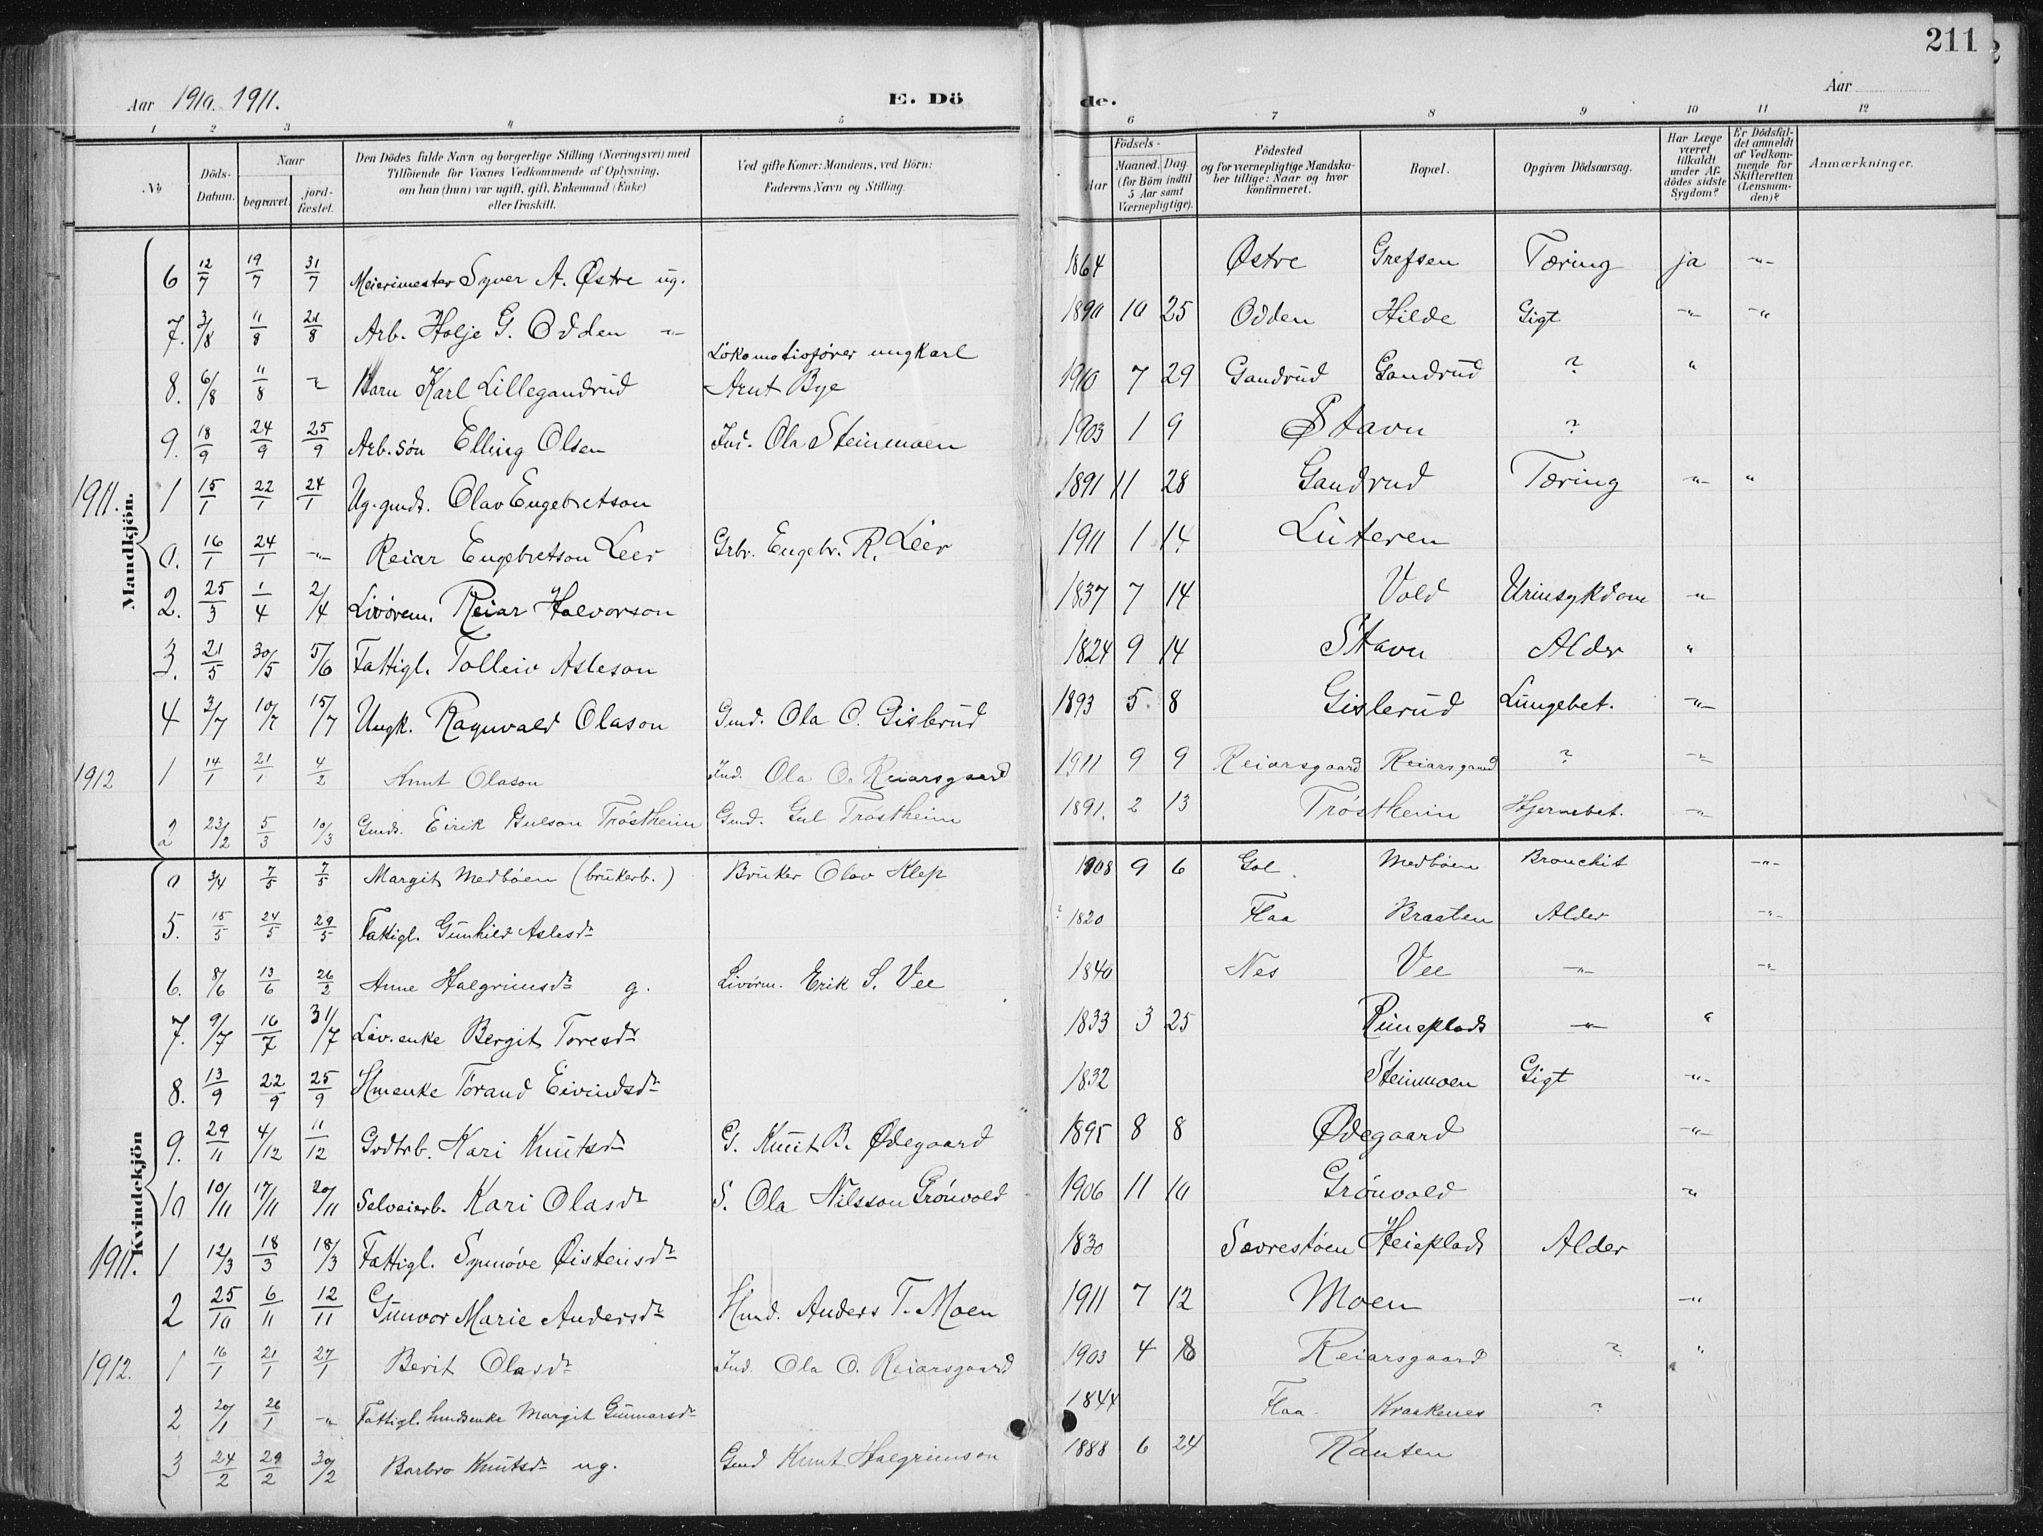 211
Aar 1910. 1911. E. Dö de. Aar
1 2 3 4 5 6 7 8 9 10 11 12
No. Döds-Datum. Naar begravet. jord-fæstet. Den Dödes fulde Navn og borgerlige Stilling (Næringsvei) med Tilföiende for Voxnes Vedkommende af Oplysning, om han (hun) var ugift, gift, Enkemand (Enke) eller fraskilt. Ved gifte Koner: Mandens, ved Börn: Faderens Navn og Stilling. Födsels- Aar Maaned. Dag. (for Börn indtil 5 Aar samt Værnepligtige). Födested og for værnepligtige Mandska-ber tillige: Naar og hvor konfirmeret. Bopæl. Opgiven Dödsaarsag. Har Læge været tilkaldt under Af-dödes sidste Sygdom? Er Dödsfal-det anmeldt af Vedkom-mende for Skifteretten (Lensman-den)? Anmærkninger.
Mandkjön.
6 12/7 19/7 31/7 Meierimester Syver A. Østre ug. 1864 Østre Grefsen Tæring ja -"-
7. 3/8 11/8 21/8 Arb. Holje G. Odden -"- 1890 10 25 Odden Hilde Gigt -"- -"-
Lokomotivfører ungkarl
8. 6/8 11/8 Barn Karl Lillegandrud Arnt Bye 1910 7 29 Gandrud Gandrud ? "
9. 18/9 24/9 25/9 Arb. søn Elling Olsen Ind. Ola Steinmoen 1903 1 9 Stavn ?
1911. 1 15/1 22/1 24/1 Ug. gmds. Olav Engebretson 1891 11 28 Gandrud Tæring -"- "
0. 16/1 24/1 -"- Reiar Engebretson Leer Grbr. Engebr. R. Leer 1911 1 14. Luteren
2. 25/3 1/4 2/4 Livørem. Reiar Halvorson 1837 7 14 Vold Urinsykdom -"-
3. 21/5 30/5 5/6 Fattigl. Tolleiv Asleson 1824 9 14 Stavn Alder "
4 3/7 10/7 15/7 Ungk. Ragnvald Olason Gmd. Ola O. Gislerud 1893 5. 8 Gislerud Lungebet. -"-
1912 1 14/1 21/1 4/2 Knut Olason Ind. Ola O. Reiarsgaard 1911 9 9 Reiarsgaard Reiarsgaard ? -"-
2 23/2 5/3 10/3 Gmds. Eirik Gulson Trøstheim Gmd. Gul Trøstheim 1891. 2 13 Trøstheim Hjernebet. -"-
Kvindekjön
0 3/4 7/5 7/5 Margit Medbøen (brukerb.) Bruker Olav Klep 1908 9 6 Gol. Medbøen Bronchit -"-
5. 15/5 24/5 29/5 Fattigl. Gunhild Aslesdr ? 1820 Flaa Braaten Alder -"-
6. 8/6 13/6 26/2 Anne Halgrimsdr g. Livørm. Erik S. Vee 1840 Nes Vee -"- -"-
7. 9/7 16/7 31/7 Liv.enke Bergit Toresdr 1833 3 25 Runeplads -"- "
8. 13/9 22/9 25/9 Hmenke Torand Eivindsdr 1832 Steinmoen Gigt -"-
9. 29/11 4/12 11/12 Grdtrb. Kari Knutsdr G. Knut B. Ødegaard 1895 8 8 Ødegaard -"-
10 10/11 17/11 20/11 Selveierb. Kari Olasdr S. Ola Nilsson Grønvold 1906 11 10 Grønvold -"-
1911. 1 12/3 18/3 18/3 Fattigl. Synnøve Øistensdr 1830 Sevrestøen Heieplads Alder
2 25/10 6/11 12/11 Gunvor Marie Andersdr Hmd. Anders T. Moen 1911 7 12 Moen -"-
1912. 1 16/1 21/1 27/1 Berit Olasdr Ind. Ola O. Reiarsgaard 1903 4 18 Reiarsgaard ? "
2 20/1 26/1 -"- Fattigl. Indsenke Margit Gunnarsdr 1844 Flaa Kraakenes ?
3 24/2 29/2 30/2 Barbro Knutsdr ug. Gmd Knut Halgrimson 1888 6 24 Ranten